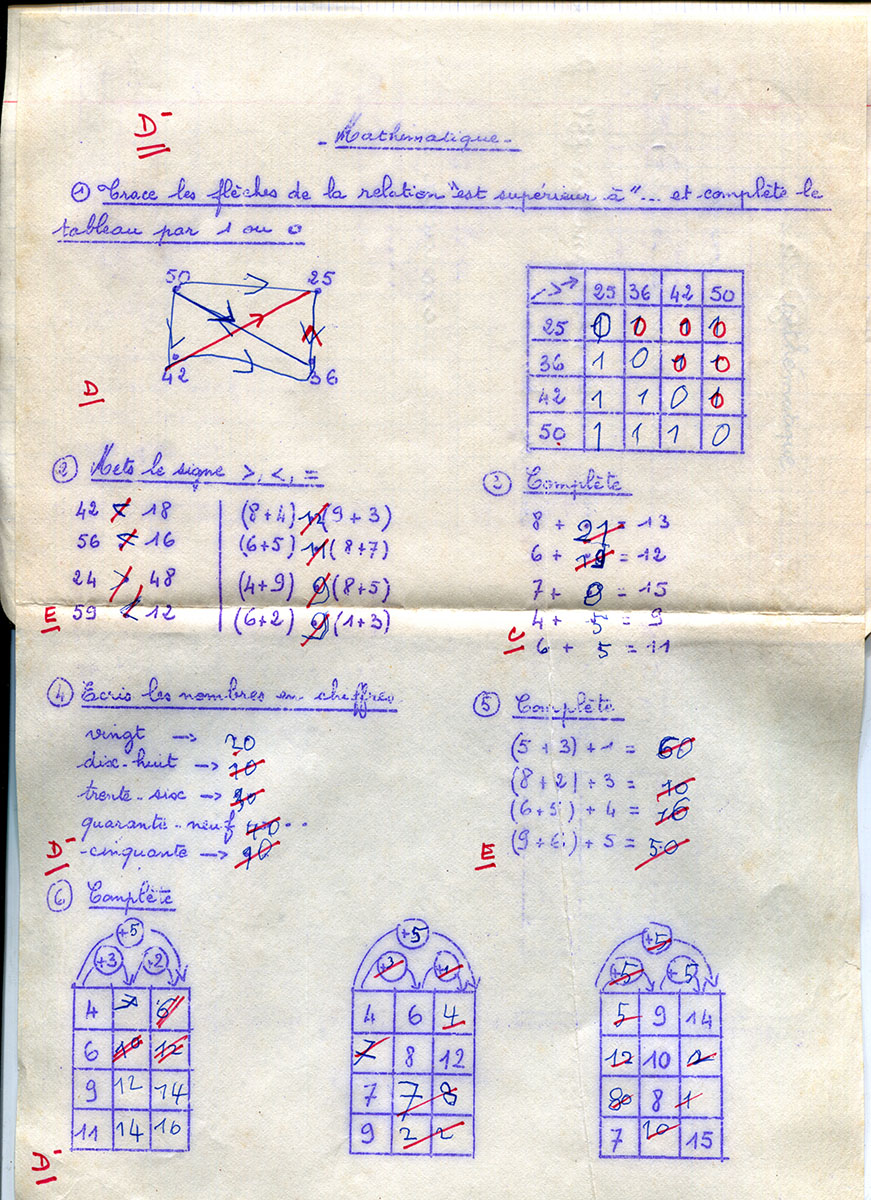 D-
- Mathématique -
① Trace les flèches de la relation "est supérieur à" ... et complète le
tableau par 1 ou 0
50 25
42 36
D
> 25 36 42 50
25 0 0 0 0
36 1 0 0 0
42 1 1 0 0
50 1 1 1 0
② Mets le signe >, <, =
42 < 18
56 < 16
24 > 48
59 < 12
E
(8+4) 12 (9+3)
(6+5) 11 (8+7)
(4+9) 9 (8+5)
(6+2) 9 (1+3)
② Complète
8 + 21 = 13
6 + 19 = 12
7 + 8 = 15
4 + 5 = 9
6 + 5 = 11
C
④ Ecris les nombres en chiffres
vingt → 20
dix-huit → 10
trente-six → 30
quarante-neuf 40
cinquante → 90
D-
⑤ Complète
(5 + 3) + 1 = 60
(8 + 2) + 3 = 10
(6 + 5) + 4 = 16
(9 + 6) + 5 = 50
E
⑥ Complète
+5
+3 +2
4 7 6
6 10 12
9 12 14
11 14 16
+5
+3
4 6 4
7 8 12
7 7 8
9 2 2
+5
+5 +5
5 9 14
12 10 2
80 8 1
7 10 15
D-